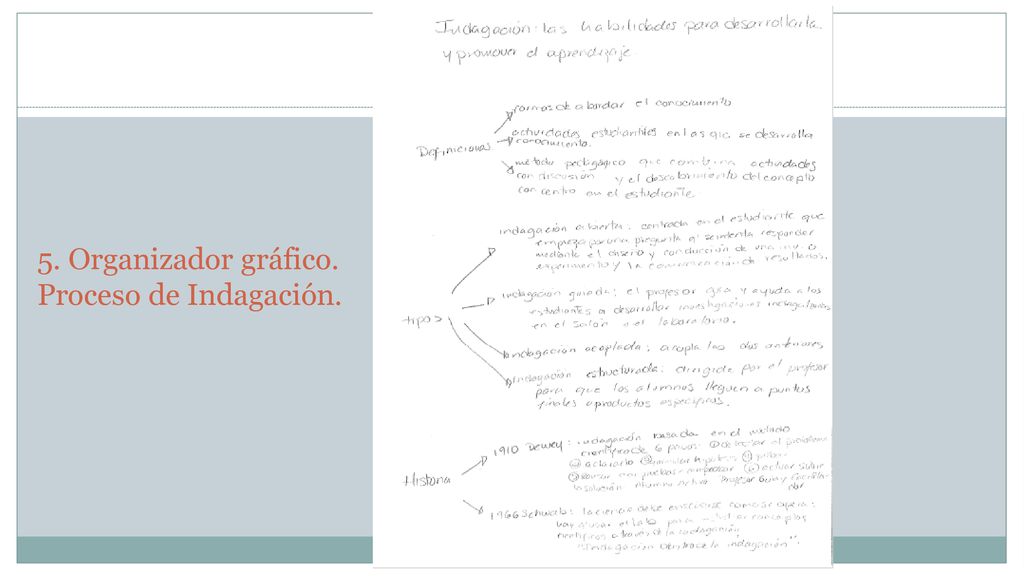 5. Organizador gráfico.
Proceso de Indagación.
Indagación: las habilidades para desarrollarla
y promover el aprendizaje.
Definiciones
Formas de abordar el conocimiento
actividades estudiantiles en las que se desarrolla
conocimiento.
método pedagógico que combina actividades
con discusión y el descubrimiento del concepto
con centro en el estudiante
tipos
indagación abierta: centrada en el estudiante que
empieza por una pregunta q' se intenta responder
mediante el diseño y conducción de una
experimento y la comunicación de resultados.
indagación guiada: el profesor guía y ayuda a los
estudiantes a desarrollar investigaciones
en el salón o el laboratorio.
indagación acoplada: acopla las dos anteriores
indagación estructurada: dirigida por el profesor
para que los alumnos lleguen a puntos
finales o productos específicos.
Historia
1910 Dewey: indagación basada en el método
científico de 6 pasos: ① el problema
② aclararlo ③ formular hipótesis ④ probar
⑤ revisar ⑥ actuar sobre
la solución Alumno activo Profesor Guía y
1966 Schwab: la ciencia debe enseñarse como se opera:
el lab. para conceptos
científicos a través de la indagación
"indagación la indagación".